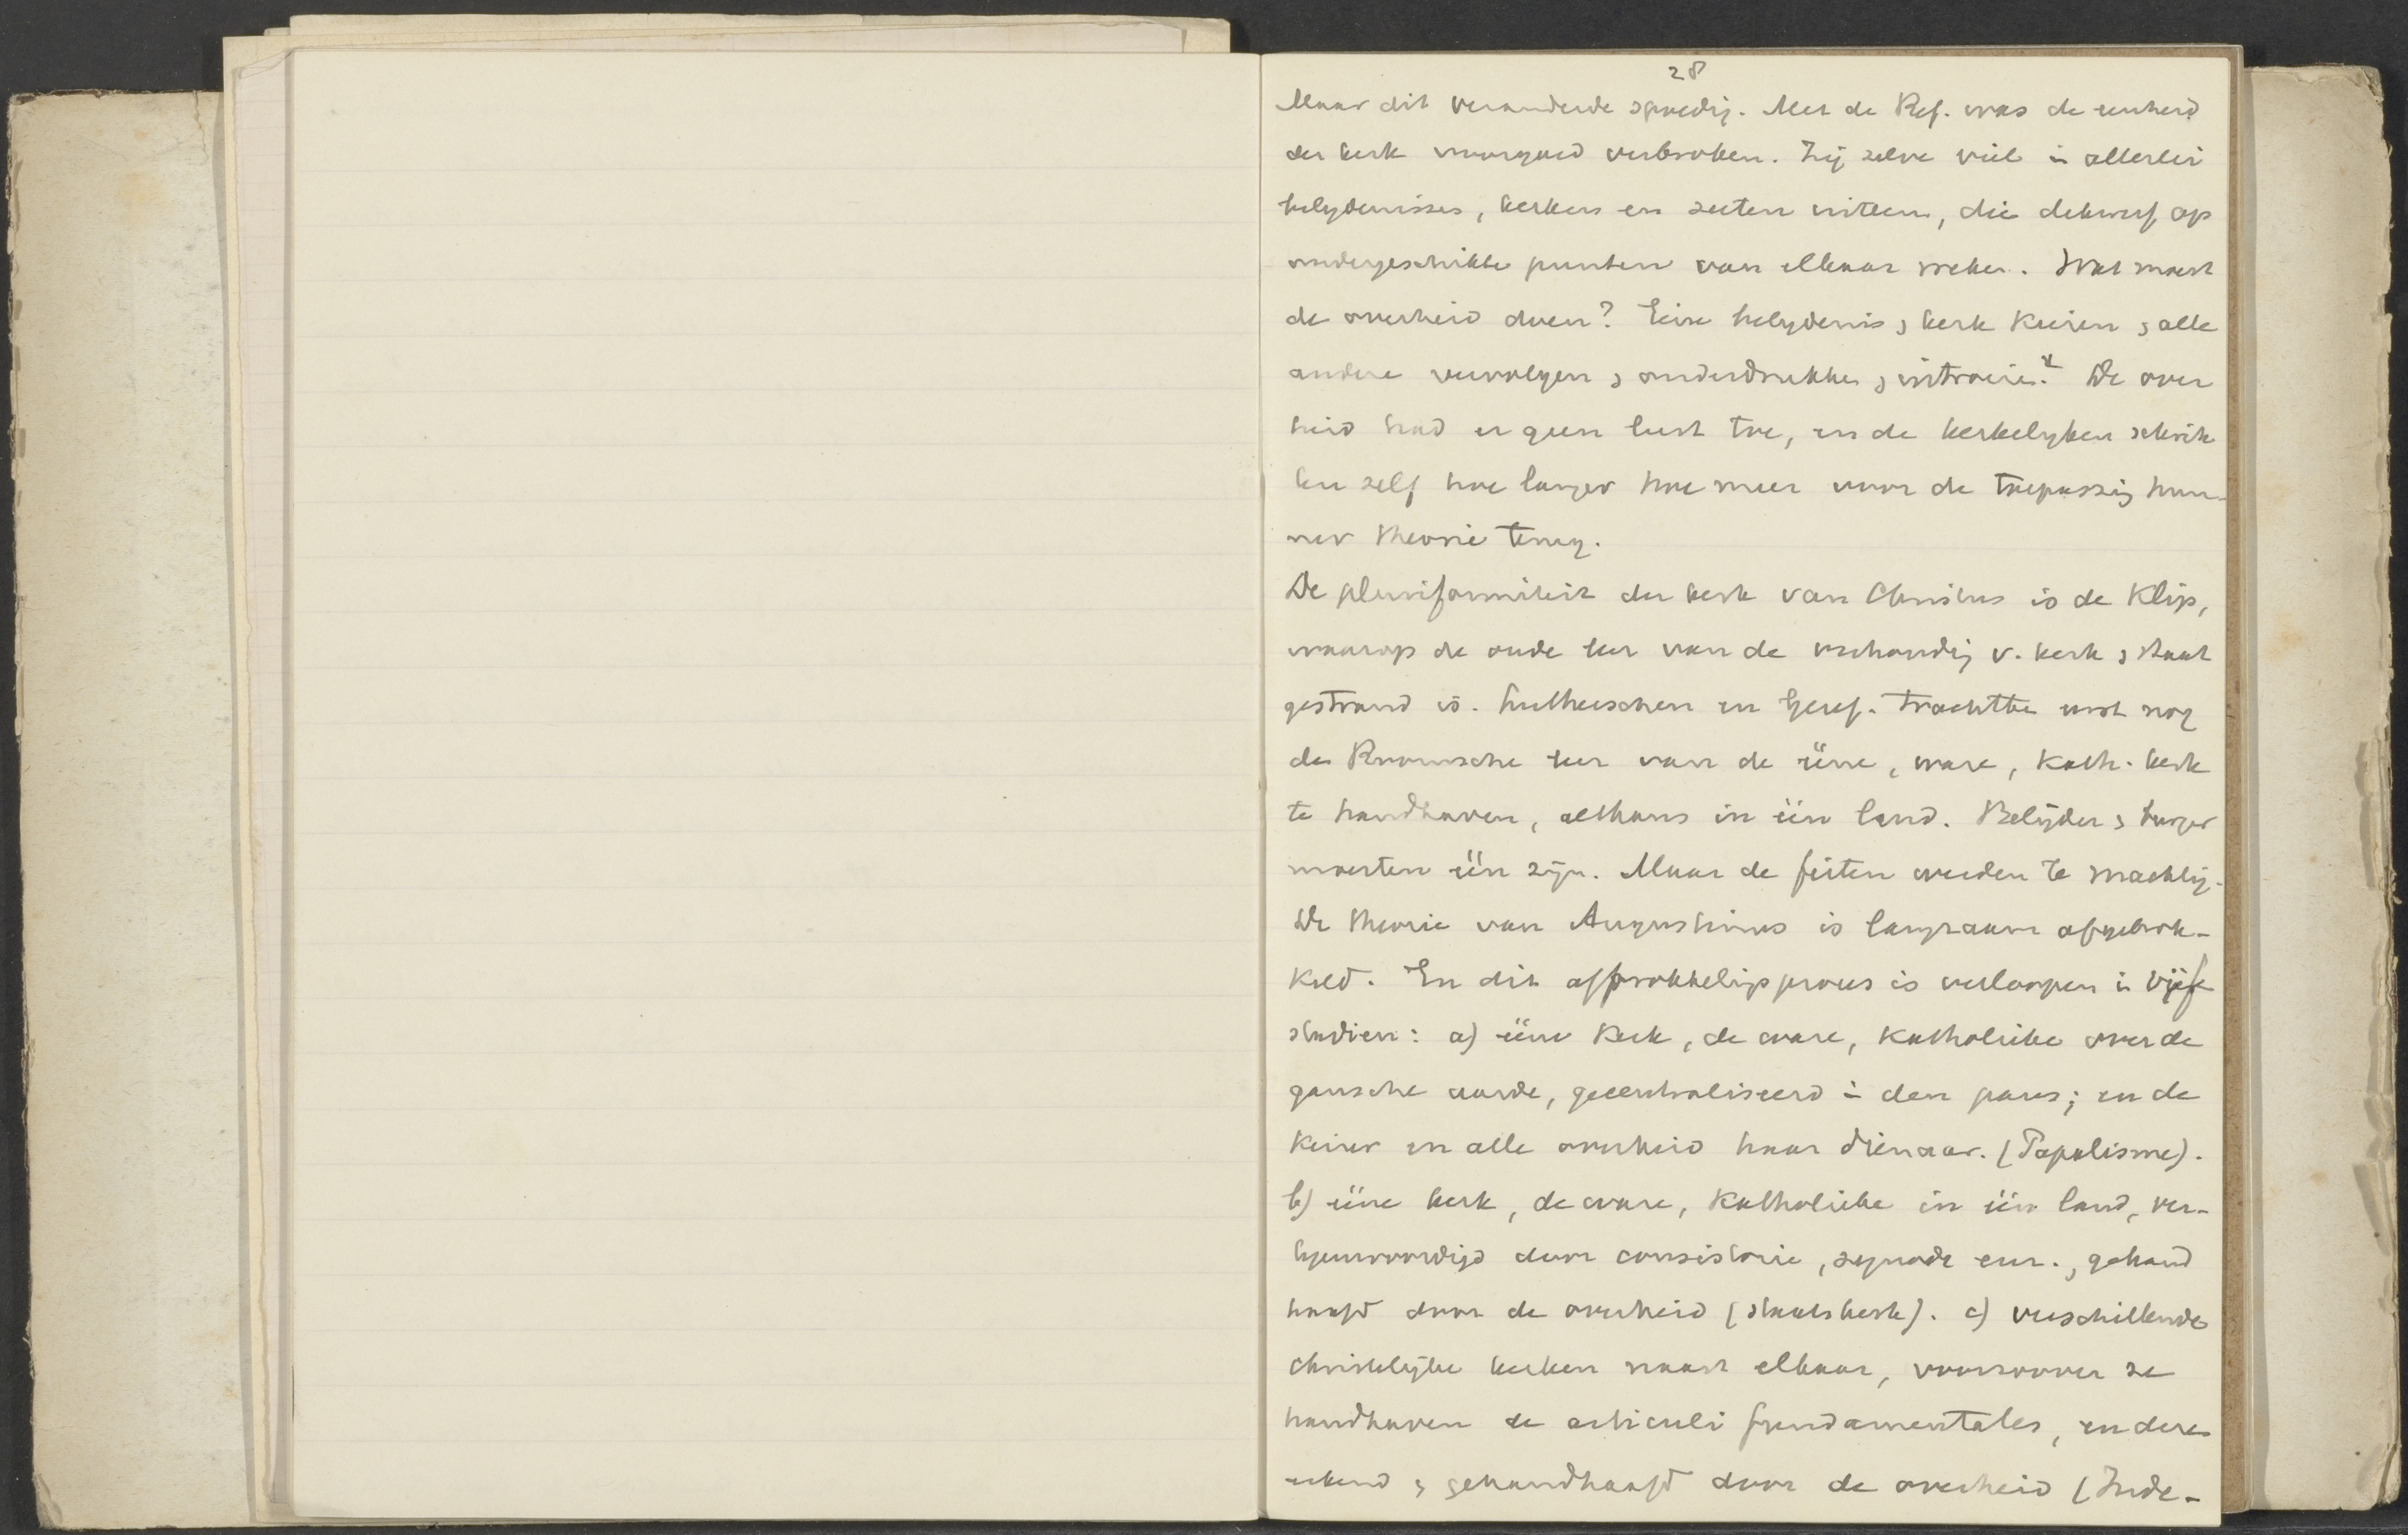 28
Maar dit veranderde spoedig. Met de Ref. was de eenheid
der kerk voorgoed verbroken. Zij zelve viel in allerlei
belydenissen, kerken en secten uiteen, die dikwerf op
ondergeschikte punten van elkaar weken. Wat moest
de overheid doen? Eéne belydenis & kerk kiezen & alle
andere vervolgen & onderdrukken & uitroeien? De over
heid had er geen lust toe, en de kerkelyken schrik
ken zelf hoe langer hoe meer voor de toepassing hun-
ner theorie terug.
De pluriformiteit der kerk van Christus is de klip,
waarop de oude leer van de verhouding v. kerk & staat
gestrand is. Lutherschen en Geref. trachtten eerst nog
de Roomsche leer van de ééne, ware, kath. kerk
te handhaven, althans in één land. Belijder & burger
moesten één zijn. Maar de feiten werden te machtig.
De theorie van Augustinus is langzaam afgebrok-
keld. En dit afbrokkelingsproces is verloopen in vijf
stadien: a) ééne Kerk, de ware, Katholieke over de
gansche aarde, gecentraliseerd in den paus; en de
keizer en alle overheid haar dienaar. (Papalisme).
b) ééne kerk, de ware, Katholieke in één land, ver-
tegenwoordigd door consistorie, synode enz., gehand
haafd door de overheid (staatskerk). c) verschillende
christelijke kerken naast elkaar, voorzoover ze
handhaven de articuli fundamentales, en deze
erkend & gehandhaafd door de overheid (Inde-